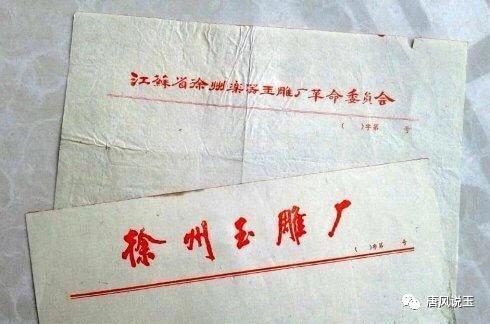 江蘇省徐州乐器玉雕厂革命委員会
(    )字第    号
徐州玉雕厂
(    )字第    号
唐风说玉